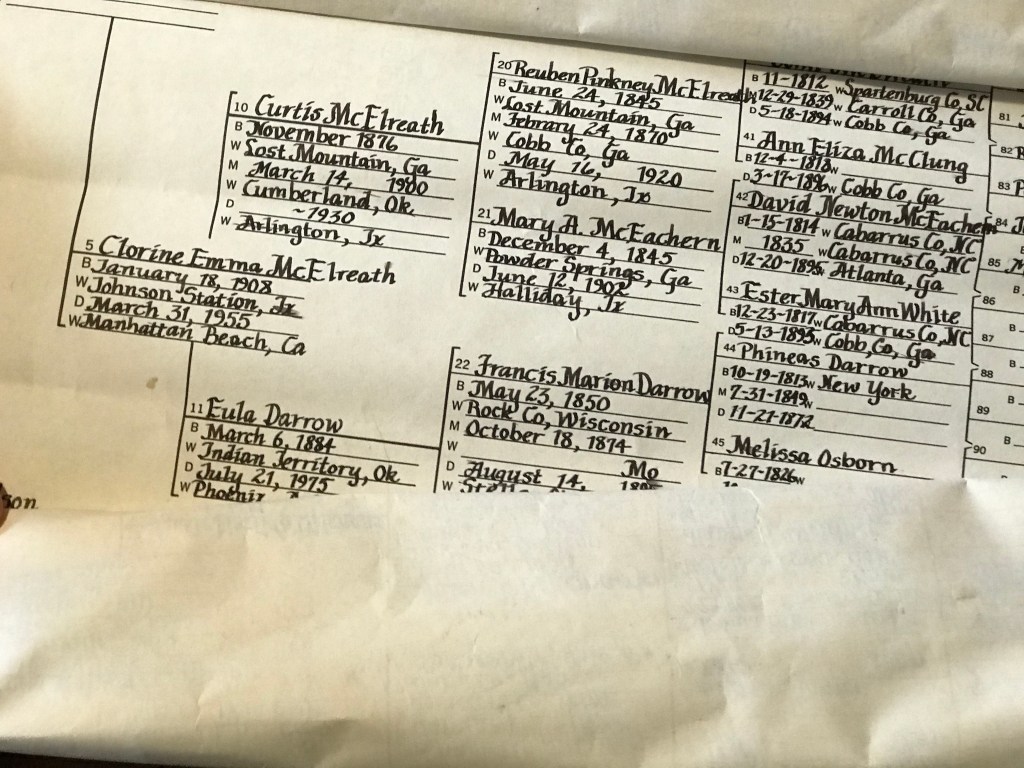 5 Clorine Emma McElreath
B January 18, 1908
W Johnson Station, Tx
D March 31, 1955
W Manhattan Beach, Ca
10 Curtis McElreath
B November 1876
W Lost Mountain, Ga
M March 14, 1900
W Cumberland, Ok
D ~1930
W Arlington, Tx
11 Eula Darrow
B March 6, 1884
W Indian Territory, Ok
D July 21, 1975
W Phoenix
20 Reuben Pinkney McElreath
B June 24, 1845
W Lost Mountain, Ga
M Febrary 24, 1870
W Cobb Co, Ga
D May 16, 1920
W Arlington, Tx
21 Mary A. McEachern
B December 4, 1845
W Powder Springs, Ga
D June 12, 1902
W Halliday, Tx
22 Francis Marion Darrow
B May 23, 1850
W Rock Co, Wisconsin
M October 18, 1874
W Mo
D August 14,
W
B 11-1812 W Spartenburg Co, SC
M 12-29-1839 W Carroll Co, Ga
D 5-18-1894 W Cobb Co, Ga
41 Ann Eliza McClung
B 12-4-1818 W
D 3-17-1896 W Cobb Co, Ga
42 David Newton McEachern
B 1-15-1814 W Cabarrus Co, NC
M 1835 W Cabarrus Co, NC
D 12-20-1895 W Atlanta, Ga
43 Ester Mary Ann White
B 12-23-1817 W Cabarrus Co, NC
D 5-13-1895 W Cobb, Co, Ga
44 Phineas Darrow
B 10-19-1813 W New York
M 7-31-1849 W
D 11-21-1872
45 Melissa Osborn
B 7-27-1826 W
81
82
83
84
85
86
B
87
B
88
B
89
B
90
son